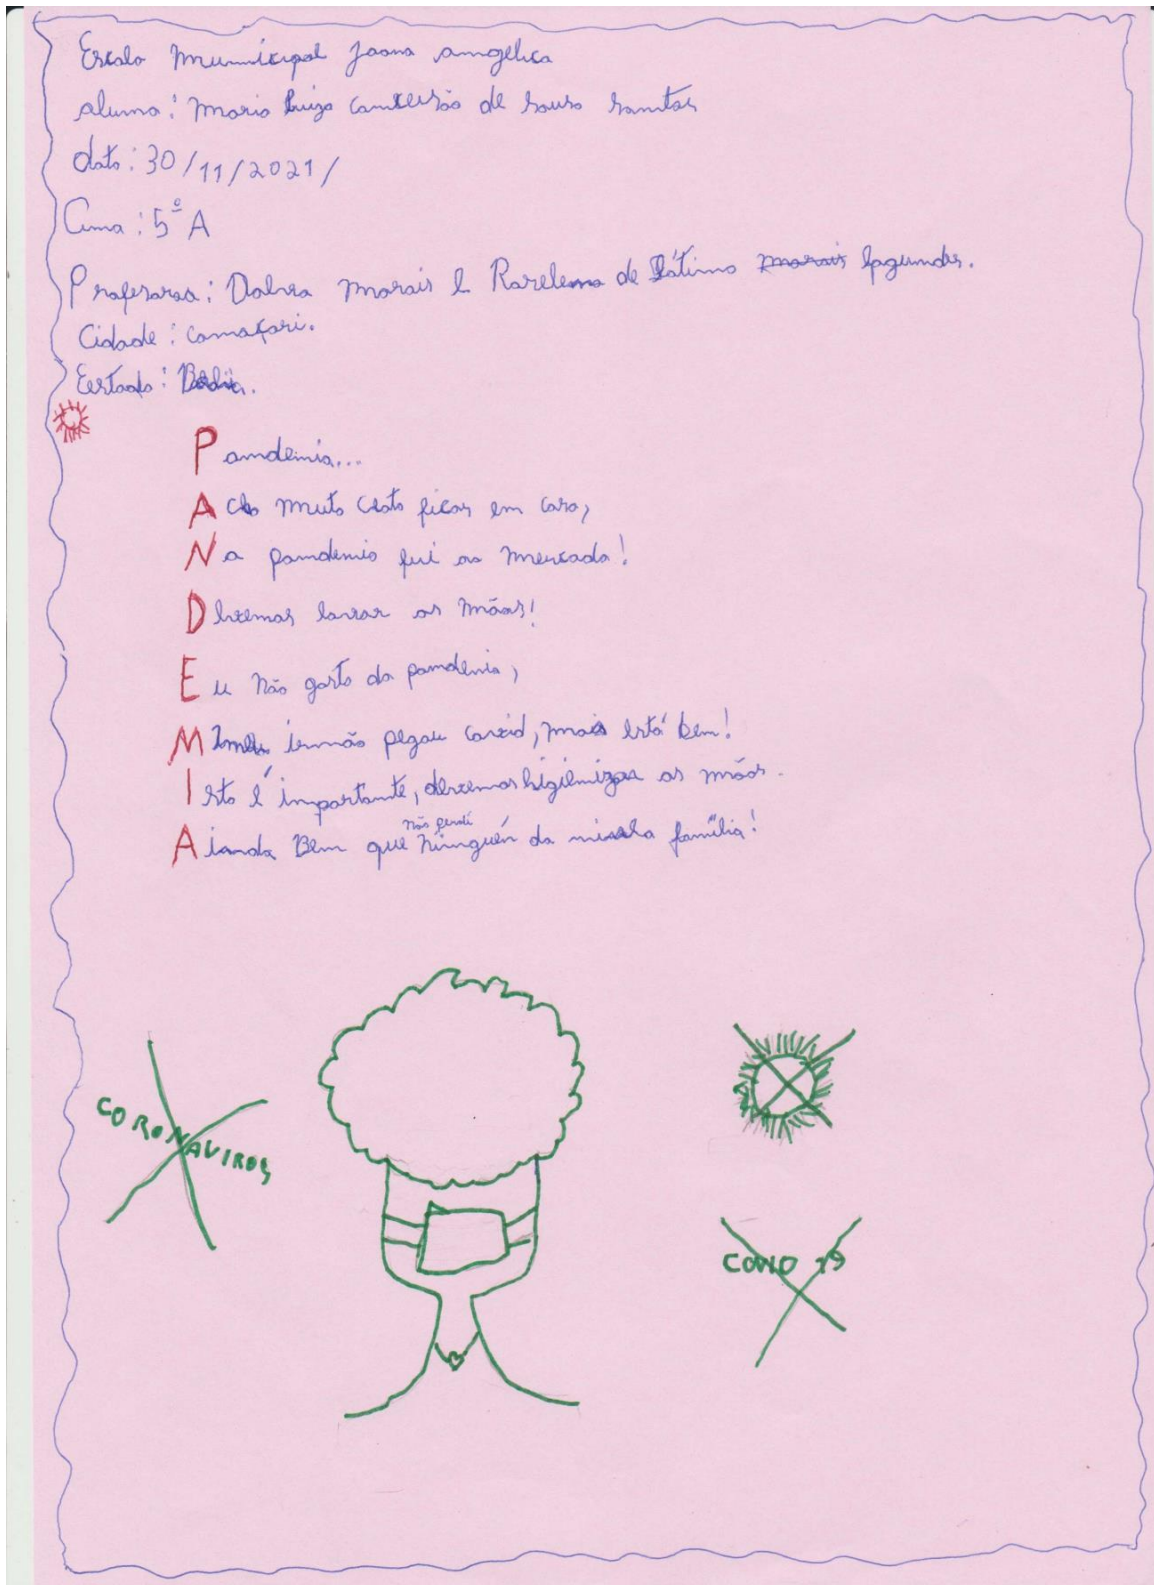 Escola Municipal Joana angelica
aluna: Maria Luiza conceisão de Souza Santos
data: 30/11/2021/
5º A
Professoras: Morais e de Fátima morais fagundes.
Cidade: camaçari.
Eestado: Bahia.
Pandemia...
Acho muito chato ficar em casa,
Na pandemia fui ao mercado!
Devemos lavar as mãos!
Eu não gosto da pandemia,
Meu irmão pegou covid, mais está bem!
Isto é importante, devemos higienizar as mãos.
não perdi
Aianda Bem que ninguén da minha família!
CORONAVIROS
COVID 19